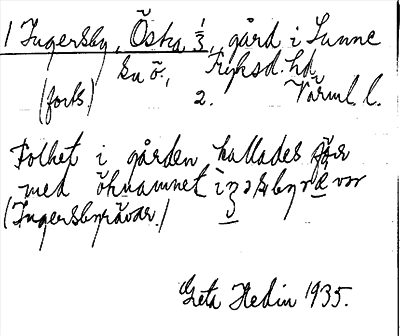 1 Ingersby, Östra ⅓, gård i Sunne
sn ö., Fryksd. hd
(forts) 2. Värml. l.
Folhet i gården kallades förr
med öknamnet
(Ingersbyrävar.)
Greta Hedin 1935.